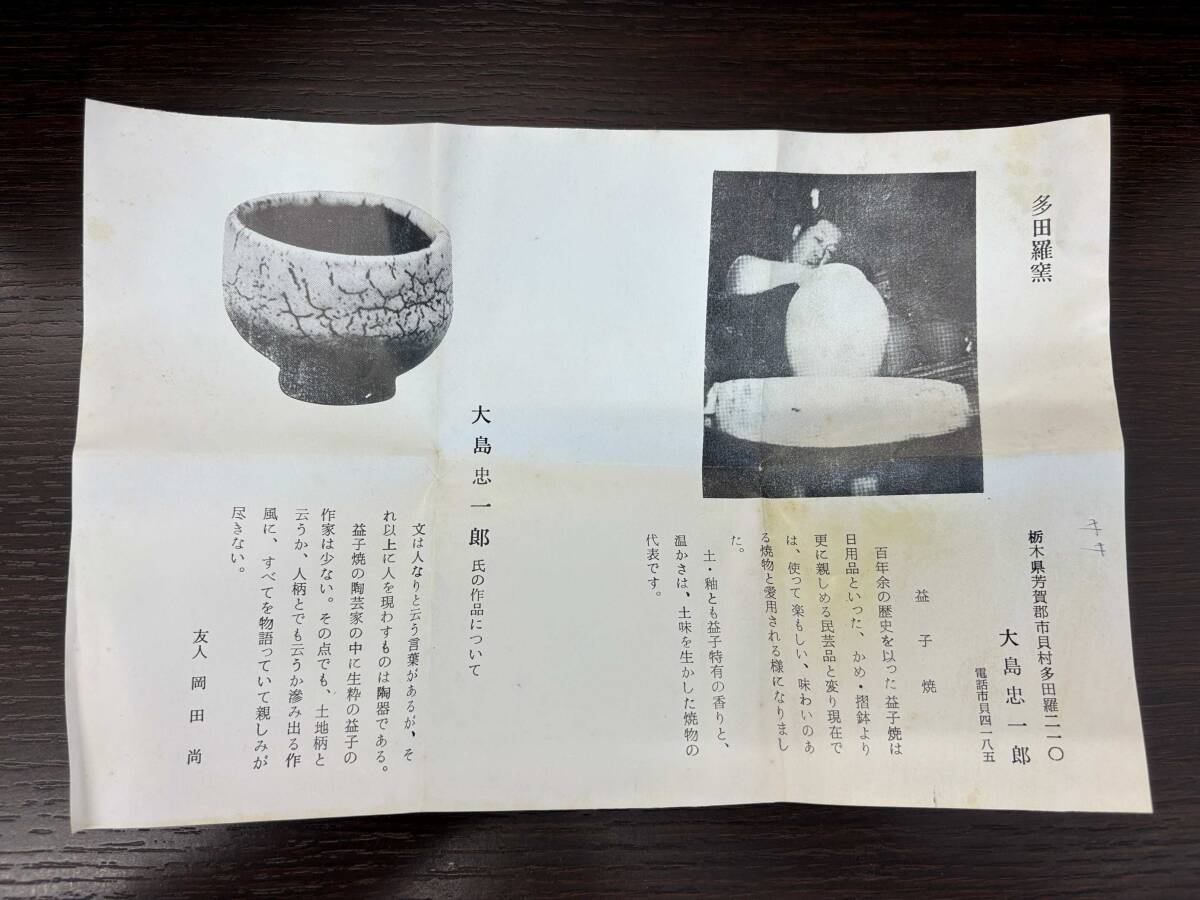 多田羅窯
栃木県芳賀郡市貝村多田羅二一〇
大島忠一郎
電話市貝四一八五
益子焼
百年余の歴史を以った益子焼は
日用品といった、かめ・摺鉢より
更に親しめる民芸品と変り現在で
は、使って楽もしい、味わいのあ
る焼物と愛用される様になりまし
た。
土・釉とも益子特有の香りと、
温かさは、土味を生かした焼物の
代表です。
大島忠一郎 氏の作品について
文は人なりと云う言葉があるが、そ
れ以上に人を現わすものは陶器である。
益子焼の陶芸家の中に生粋の益子の
作家は少ない。その点でも、土地柄と
云うか、人柄とでも云うか滲み出る作
風に、すべてを物語っていて親しみが
尽きない。
友人 岡田 尚